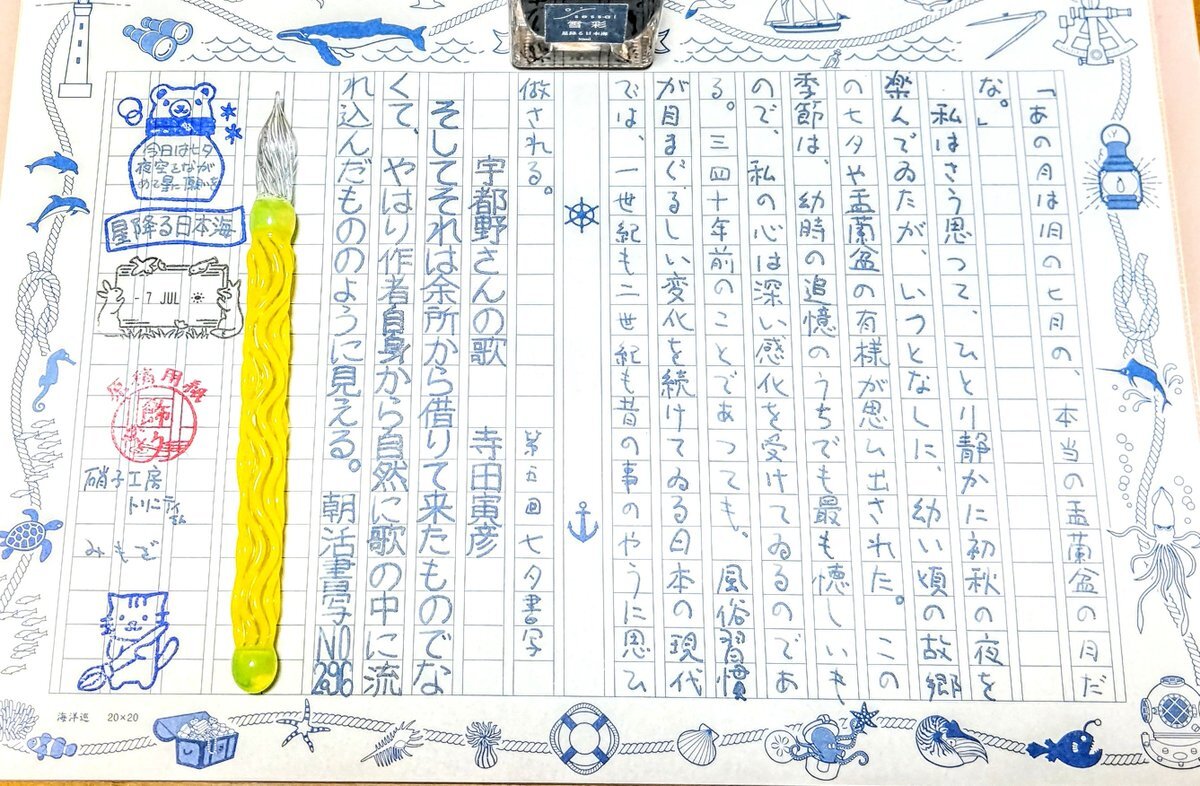 雪彩
星降る日本海
「あの月は旧の七月の、本当の盂蘭盆の月だ
な。」
私はさう思つて、ひとり静かに初秋の夜を
楽んでゐたが、いつとなしに、幼い頃の故郷
の七夕や盂蘭盆の有様が思ひ出された。この
季節は、幼時の追憶のうちでも最も懐しいも
ので、私の心は深い感化を受けてゐるのであ
る。三四十年前のことであつても、風俗習慣
が目まぐるしい変化を続けてゐる日本の現代
では、一世紀も二世紀も昔の事のやうに思ひ
做される。 第五回七夕書写
宇都野さんの歌 寺田寅彦
そしてそれは余所から借りて来たものでな
くて、やはり作者自身から自然に歌の中に流
れ込んだもののように見える。 朝活書写NO296
今日は七夕
夜空をなが
めて星に願いを
星降る日本海
- 7 JUL
原稿用紙
硝子工房
トリニティ
みもざ
海洋巡 20×20